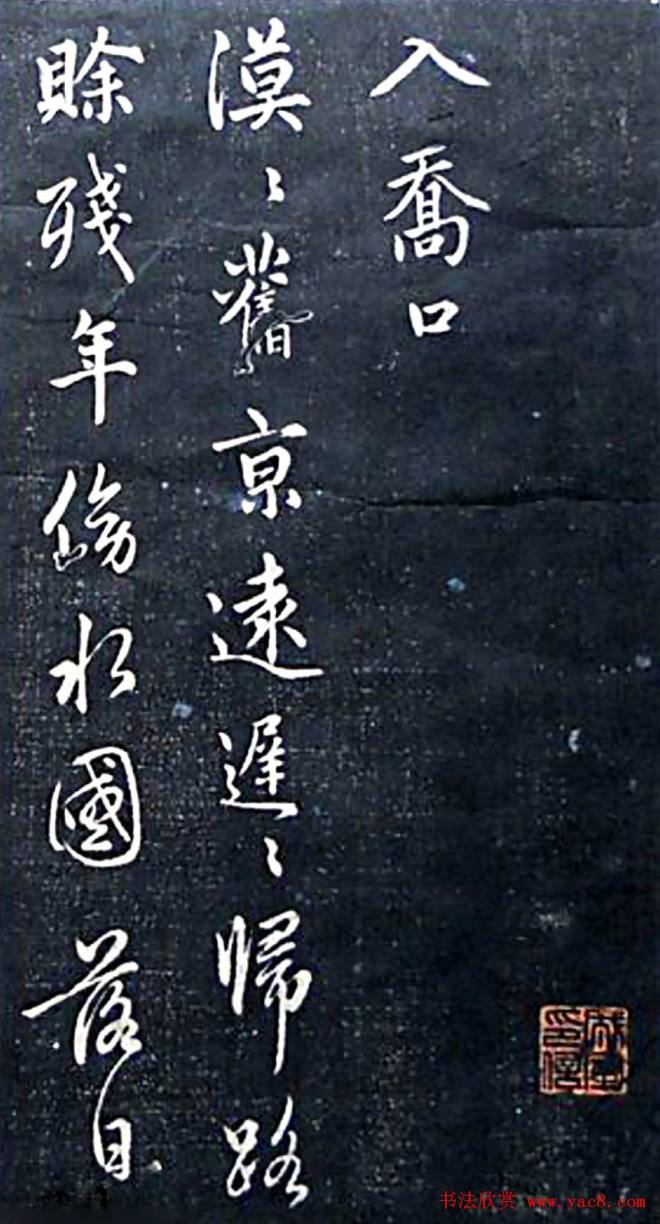 入喬口
漠〻舊京遠遲〻歸路
賒殘年傍水國落日
书法欣赏 www.yac8.com